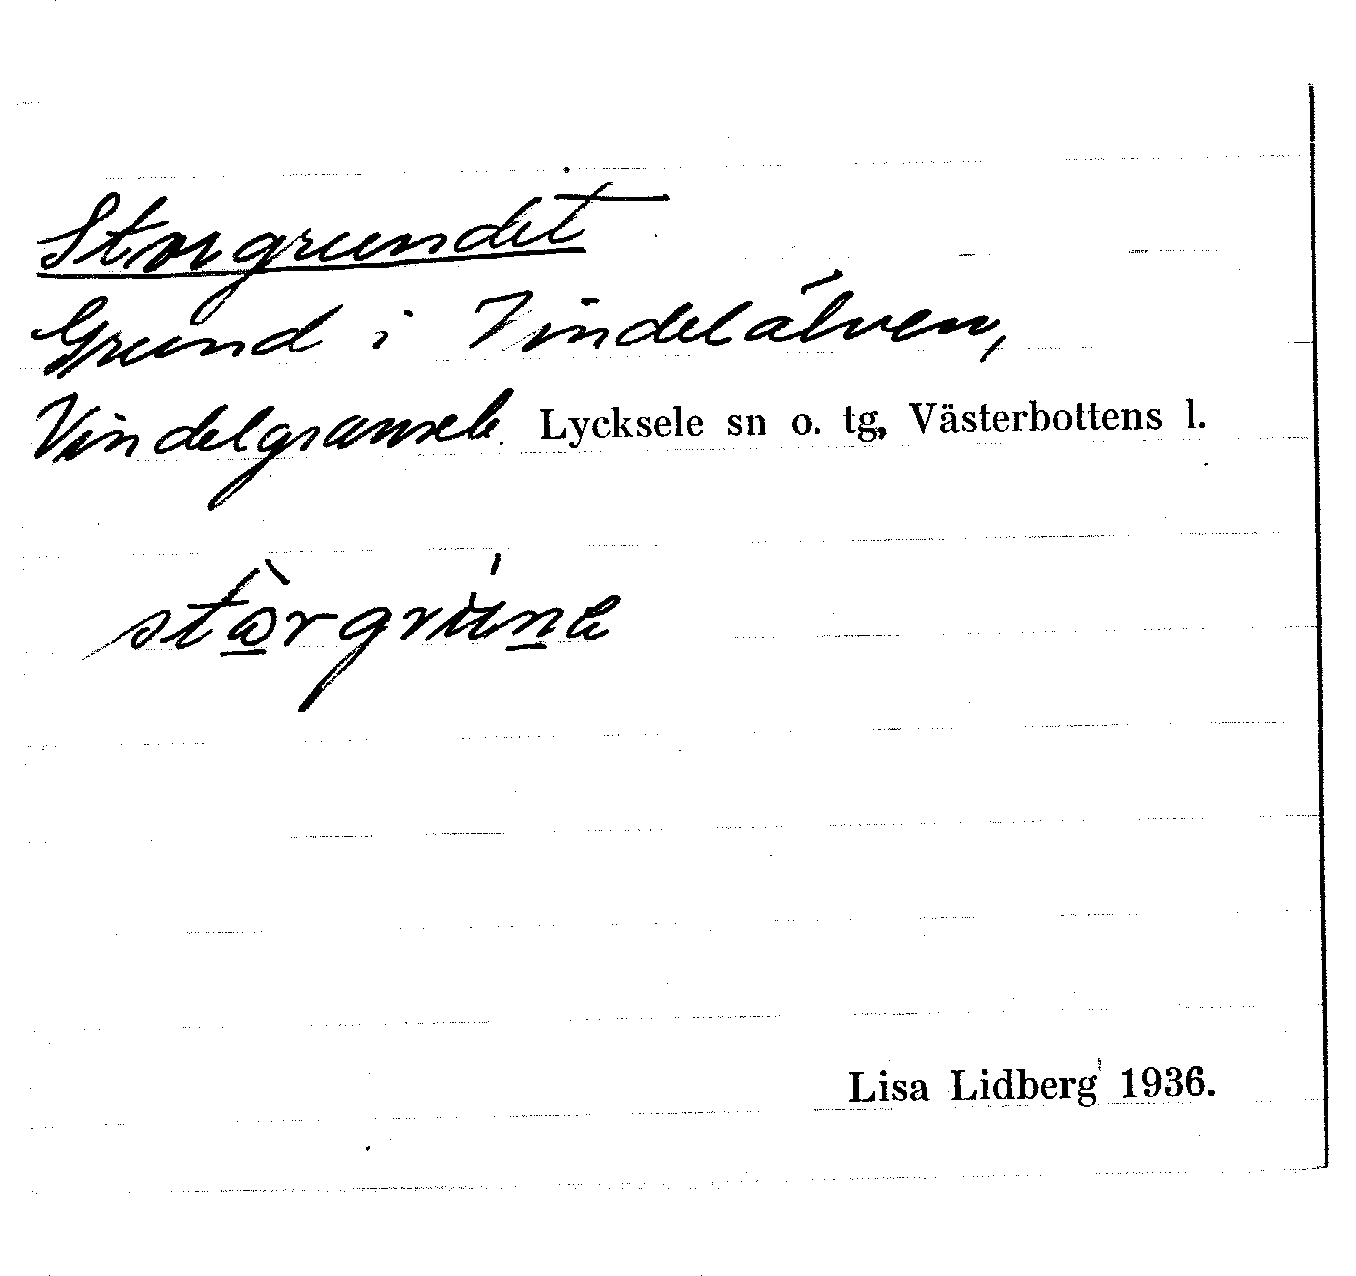 Storgrundet
Grund i Vindelälven,
Vindelgransele Lycksele sn o. tg, Västerbottens l.
stòrgrúna
Lisa Lidberg 1936.